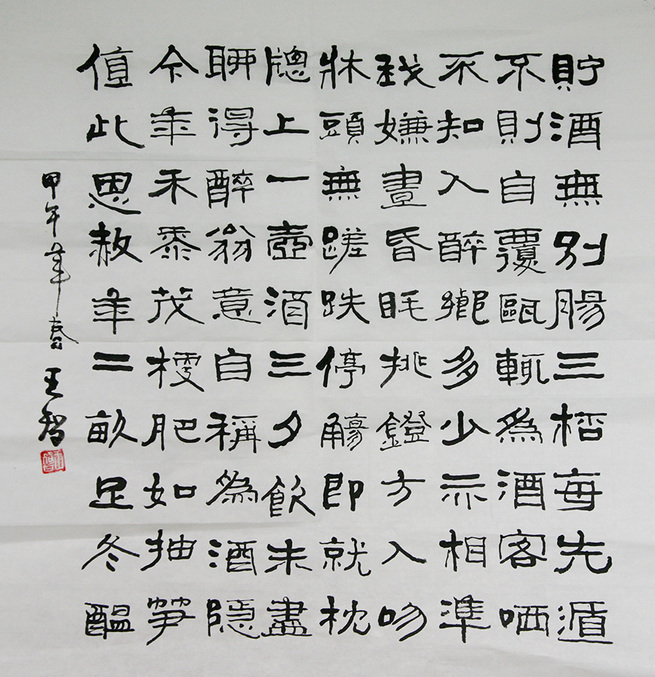 貯酒無別腸三桮每先遁
不則自覆甌輒為酒客哂
不知入醉鄉多少示相準
我嫌晝昏眊挑鐙方入吻
牀頭無蹉跌停觴即就枕
牕上一壺酒三夕飲未盡
聊得醉翁意自稱為酒隱
今年禾黍茂肥如抽筍
值此思赦年二畝足冬醖
甲午年春王智